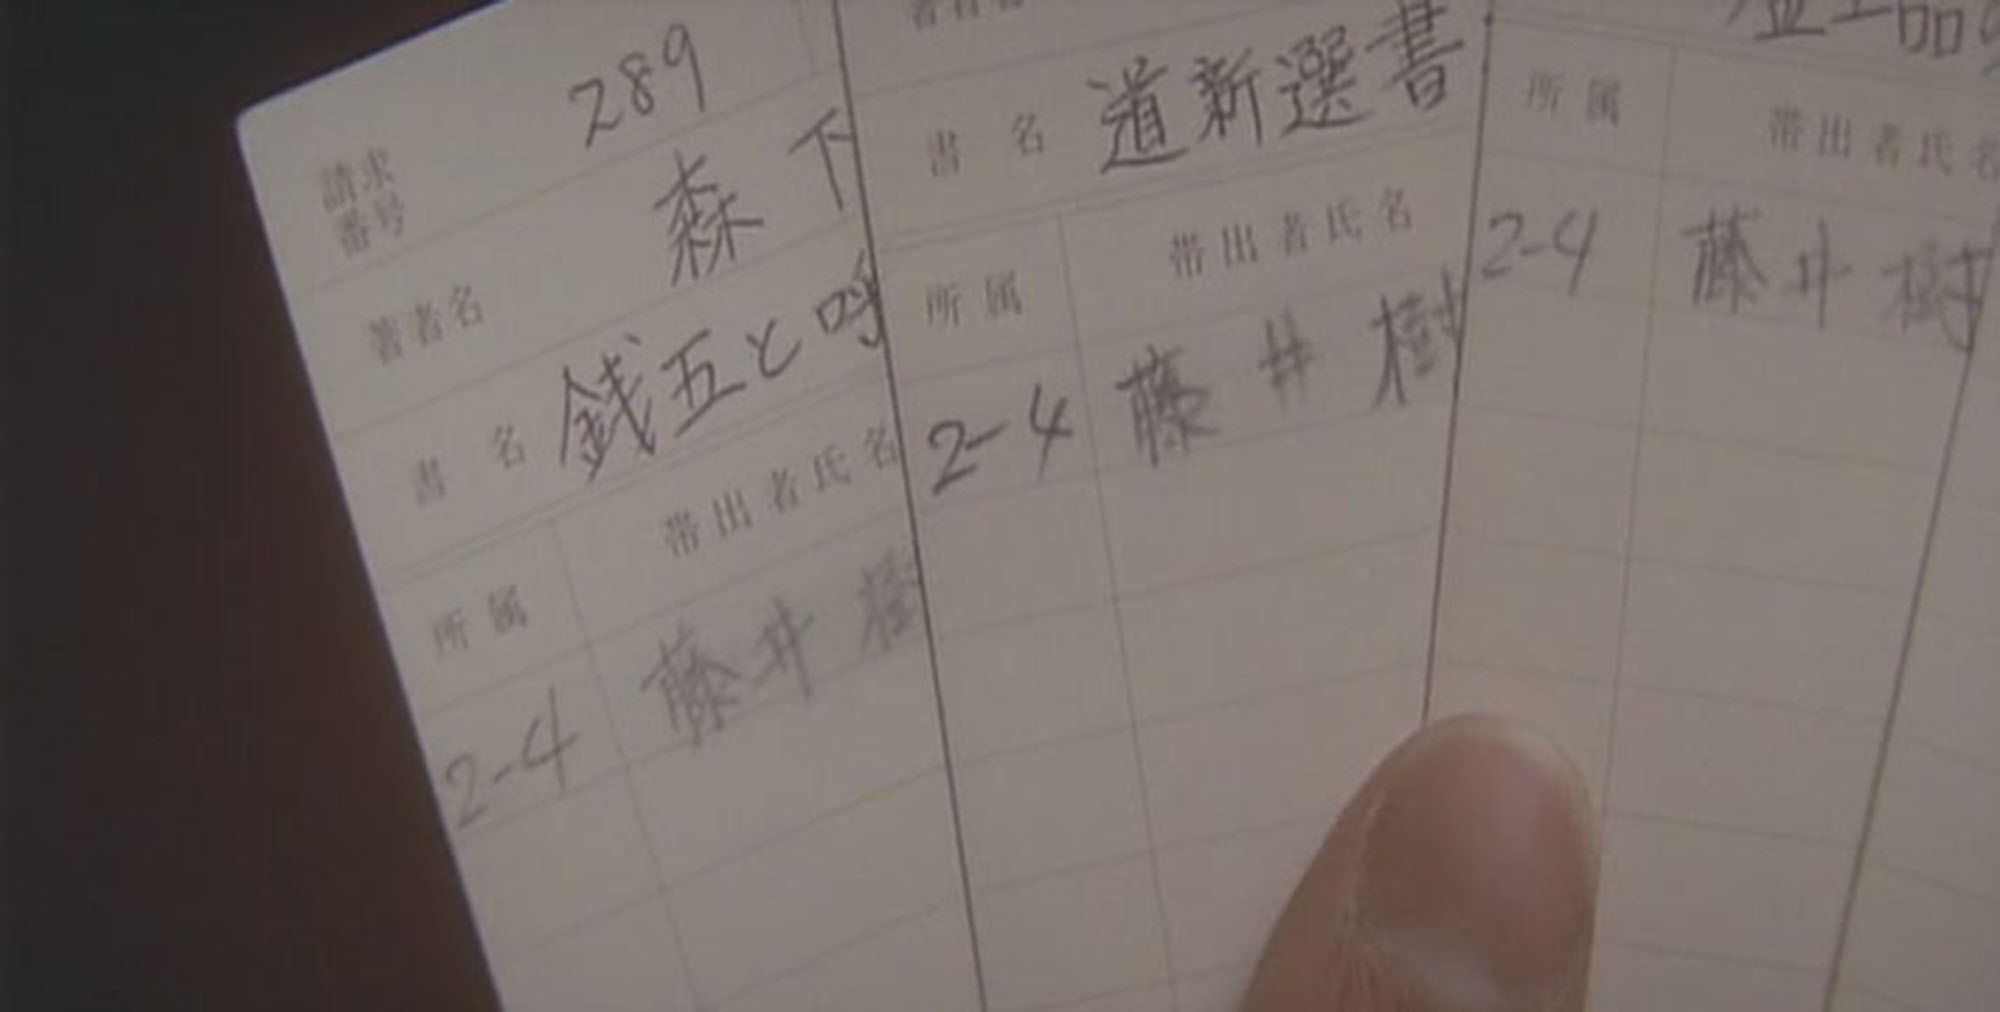 289
請求
番号
森下
著者名
銭五と呼
書名
帯出者氏名
所属
藤井樹
2-4
書名 道新選書
所属 帯出者氏名
2-4 藤井樹
所属 帯出者氏名
2-4 藤井樹